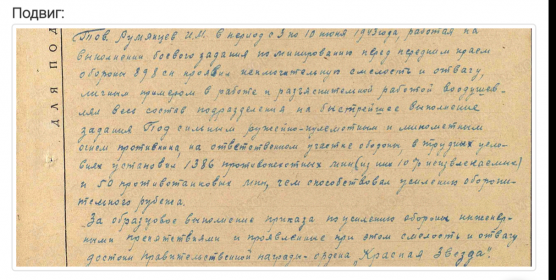 Подвиг:
ДЛЯ ПОД
Тов. Румянцев И.М. в период с 3 по 10 июня 1943 года, работая на
выполнении боевого задания по минированию перед передним краем
обороны 898 сп проявил исключительную смелость и отвагу,
личным примером в работе и разъяснительной работой воодушев-
лял весь состав подразделения на быстрейшее выполнение
задания Под сильным ружейно-пулеметным и минометным
огнем противника, на ответственном участке обороны, в трудных усло-
виях установил 1386 противопехотных мин (из них 10% неизвлекаемые)
и 50 противотанковых мин, чем способствовал усилению оборони-
тельного рубежа.
За образцовое выполнение приказа по усилению обороны инженер-
ными препятствиями и проявленные при этом смелость и отвагу
достоин правительственной награды - ордена "Красная Звезда".